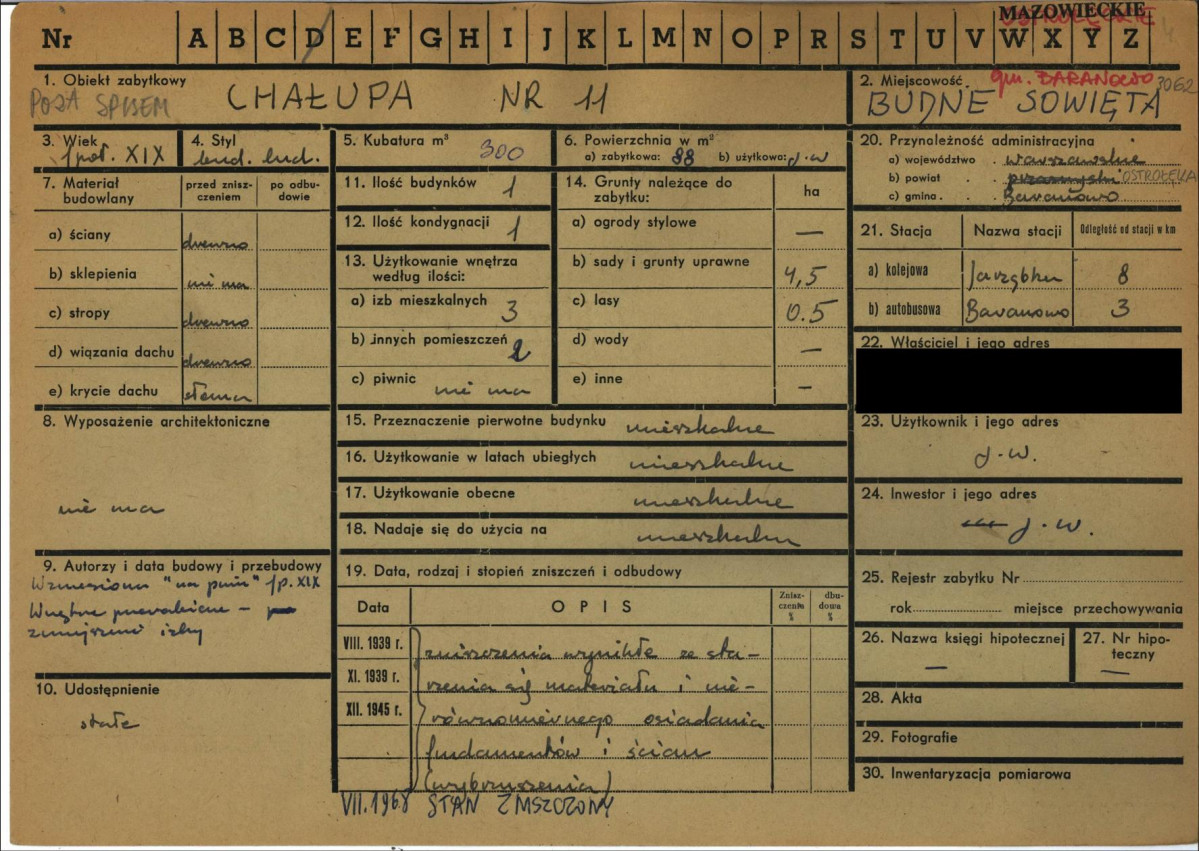 MAZOWIECKIE
OSTROŁĘCKIE
Nr A B C D E F G H I J K L M N O P R S T U V W X Y Z
1. Obiekt zabytkowy
POZA SPISEM CHAŁUPA NR 11
2. Miejscowość gm. BARANOWO 3062
BUDNE SOWIĘTA
3. Wiek
I poł. XIX
4. Styl
bud. lud.
5. Kubatura m³
300
6. Powierzchnia w m²
a) zabytkowa: 88 b) użytkowa: j.w
7. Materiał budowlany
przed znisz-
czeniem
po odbu-
dowie
a) ściany drewno
b) sklepienia nie ma
c) stropy drewno
d) wiązania dachu drewno
e) krycie dachu słoma
8. Wyposażenie architektoniczne
nie ma
9. Autorzy i data budowy i przebudowy
Wzniesiona "na pniu" I p. XIX
Wnętrze przerabiane –
zmniejszono izby
10. Udostępnienie
stałe
11. Ilość budynków 1
12. Ilość kondygnacji 1
13. Użytkowanie wnętrza
według ilości:
a) izb mieszkalnych 3
b) innych pomieszczeń 2
c) piwnic nie ma
14. Grunty należące do
zabytku: ha
a) ogrody stylowe —
b) sady i grunty uprawne 4,5
c) lasy 0.5
d) wody —
e) inne –
15. Przeznaczenie pierwotne budynku mieszkalne
16. Użytkowanie w latach ubiegłych mieszkalne
17. Użytkowanie obecne mieszkalne
18. Nadaje się do użycia na mieszkalne
19. Data, rodzaj i stopień zniszczeń i odbudowy
Data OPIS
Znisz-
czenia
%
dbu-
dowa
%
VIII. 1939 r. zniszczenia wynikłe ze sta-
XI. 1939 r. rzenia się materiału i nie-
XII. 1945 r. równomiernego osiadania
fundamentów i ścian
(wybrzuszenia)
VII.1968 STAN ZNISZCZONY
20. Przynależność administracyjna
a) województwo warszawskie
b) powiat przasnyski OSTROŁĘKA
c) gmina Baranowo
21. Stacja Nazwa stacji Odległość od stacji w km
a) kolejowa Jarząbka 8
b) autobusowa Baranowo 3
22. Właściciel i jego adres
23. Użytkownik i jego adres
j.w.
24. Inwestor i jego adres
j.w.
25. Rejestr zabytku Nr
rok miejsce przechowywania
26. Nazwa księgi hipotecznej
—
27. Nr hipo-
teczny
—
28. Akta
29. Fotografie
30. Inwentaryzacja pomiarowa